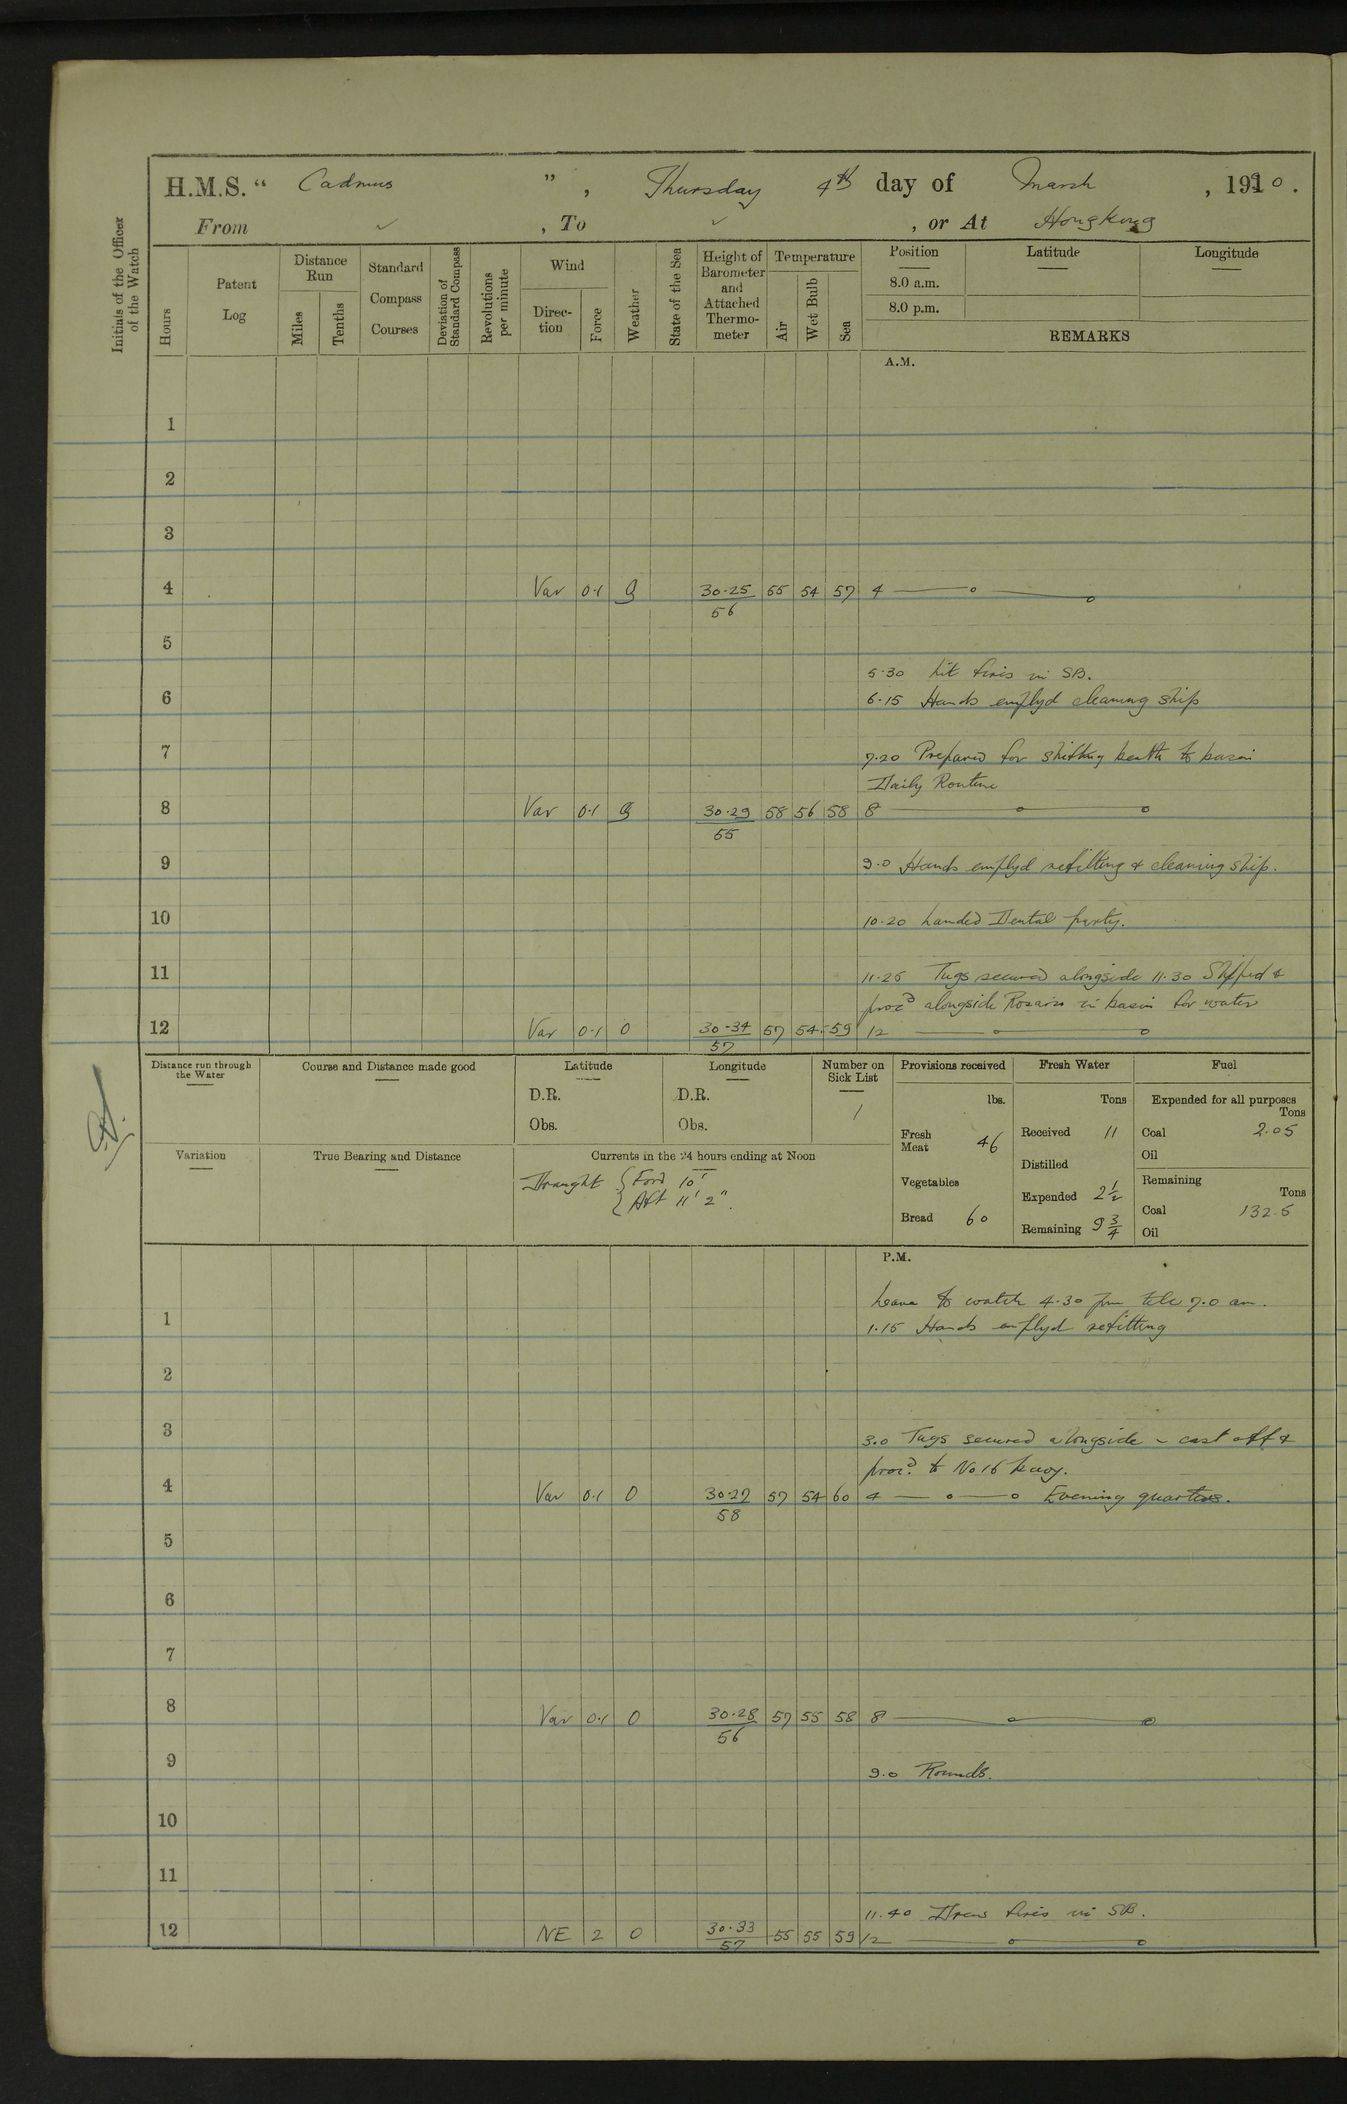 H.M.S. " Cadmus " , Thursday 4th day of March , 1920 .
From ✓ , To ✓ , or At Hongkong
Initials of the Officer of the Watch
Hours
Patent Log
Distance Run
Miles
Tenths
Standard Compass Courses
Deviation of Standard Compass
Revolutions per minute
Wind
Direction
Force
Weather
State of the Sea
Height of Barometer and Attached Thermometer
Temperature
Air
Wet Bulb
Sea
Position
8.0 a.m.
8.0 p.m.
Latitude
Longitude
REMARKS
A.M.
1
2
3
4 Var 0·1 g 30·25 55 54 57 4
56
5
5·30 Lit fires in SB.
6
6·15 Hands emplyd cleaning ship
7
7·20 Prepared for shifting berth to basin
Daily Routine
8 Var 0·1 g 30·29 58 56 58 8
55
9
9·0 Hands emplyd refitting & cleaning ship.
10
10·20 Landed Dental party.
11
11·25 Tugs secured alongside 11·30 Slipped &
procd alongside Rosario in basin for water
12 Var 0·1 0 30·34 57 54 59 12
57
Distance run through the Water
Course and Distance made good
Latitude
D.R.
Obs.
Longitude
D.R.
Obs.
Number on Sick List
1
Provisions received
lbs.
Fresh Meat 46
Vegetables
Bread 60
Fresh Water
Tons
Received 11
Distilled
Expended 2 1/2
Remaining 9 3/4
Fuel
Expended for all purposes
Tons
Coal 2·05
Oil
Remaining
Tons
Coal 132.5
Oil
Variation
True Bearing and Distance
Currents in the 24 hours ending at Noon
Draught { Ford 10'
{ Aft 11' 2".
P.M.
Leave to watch 4·30 pm till 7·0 am.
1
1·15 Hands emplyd refitting
2
3
3·0 Tugs secured alongside - cast off &
procd. to No 16 buoy.
4 Var 0·1 0 30·27 57 54 60 4 Evening quarters.
58
5
6
7
8 Var 0·1 0 30·28 57 55 58 8
56
9
9·0 Rounds.
10
11
11·40 Drew fires in SB.
12 NE 2 0 30·33 55 55 59 12
57